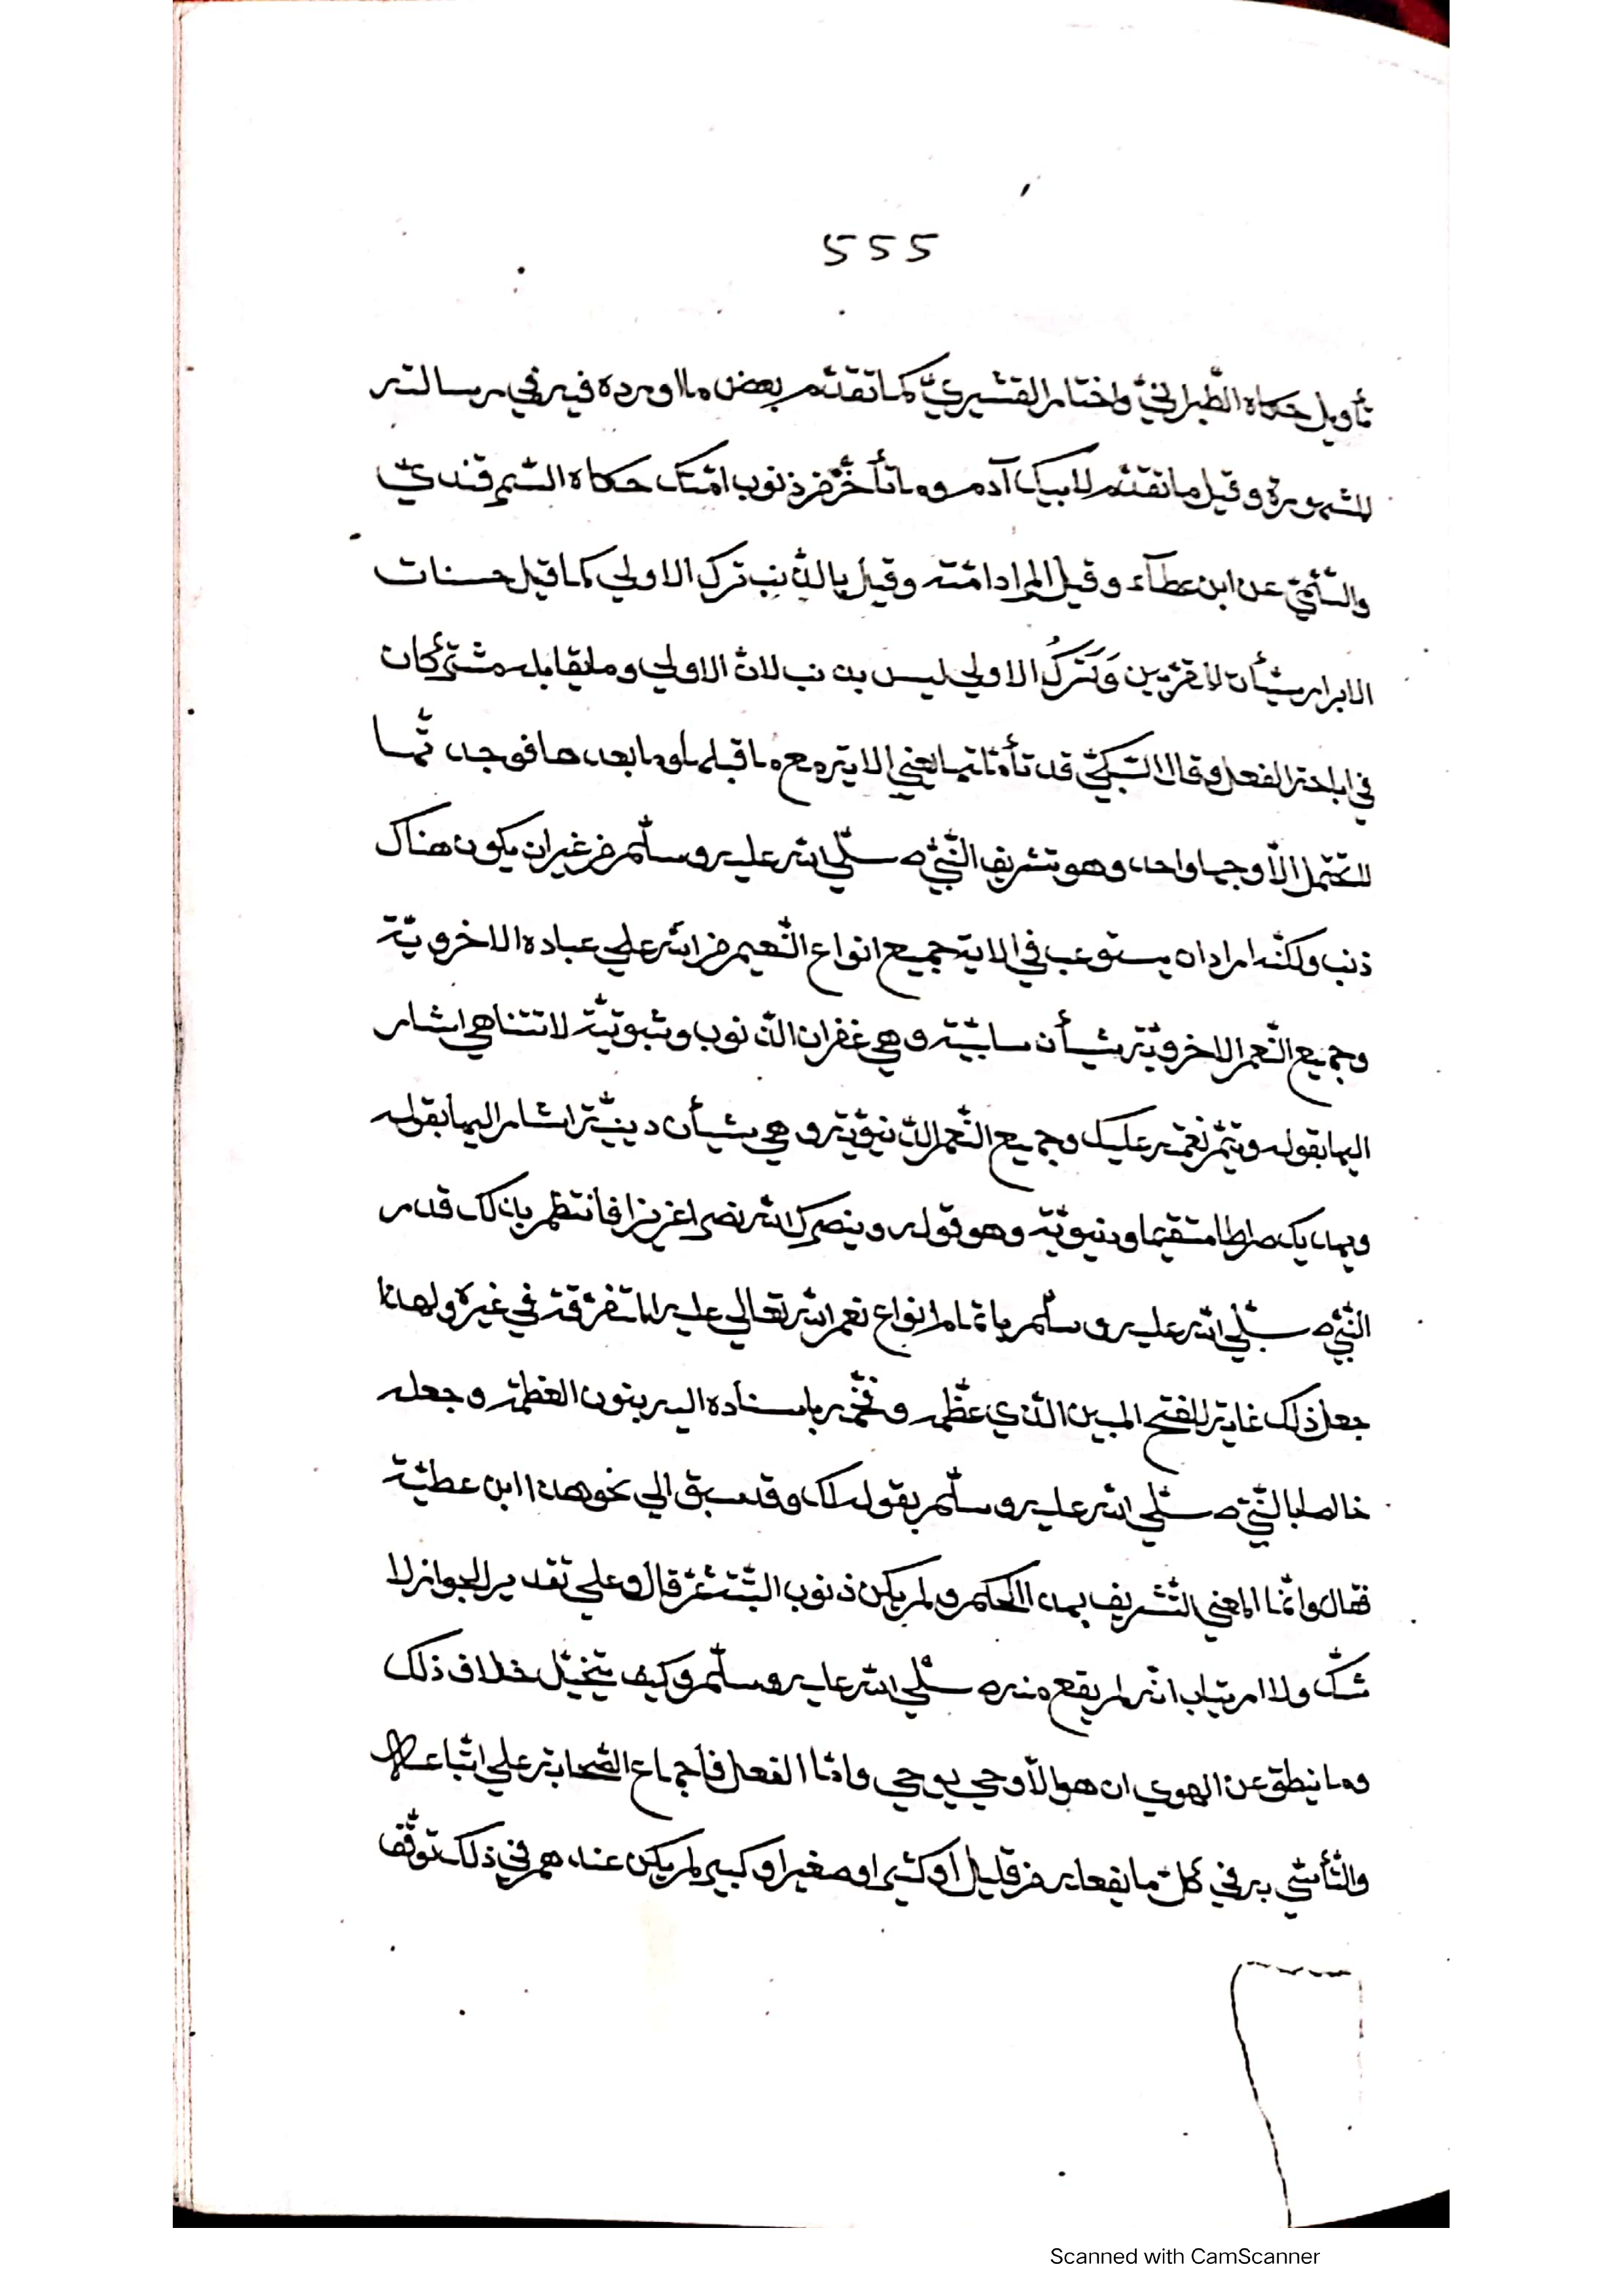 555
تأويل حكاه الطّبرانيّ واختار القشيريّ كما تقدّم بعض ما اورده فيه في رسالته
المشهورة وقيل ما تقدّم لابيك آدم وما تأخّر من ذنوب امّتك حكاه السّمرقنديّ
والسّلميّ عن ابن عطآء وقيل المراد امّته وقيل بالذّنب ترك الاولي كما قيل حسنات
الابرار سيّأت المقرّبين وَتَرْكُ الاولي ليس بذنب لانّ الاولي وما يقابله مشتركان
في اباحة الفعل وقال السّبكيّ قد تأمّلتها يعني الاية مع ما قبلها وما بعدها فوجدتّها
لا تحتمل الّا وجها واحدا وهو تشريف النّبيّ صلّي الله عليه وسلّم من غير ان يكون هناك
ذنب ولكنّه اراد ان يستوعب في الاية جميع انواع النّعيم من الله علي عباده الاخرويّة
وجميع النّعم الاخرويّة شيأن سلبيّة وهي غفران الذّنوب وثبوتيّة لا تتناهي اشار
اليها بقوله ويتمّ نعمته عليك وجميع النّعم الدّنيويّة وهي شيأن دينيّة اشار اليها بقوله
ويهديك صراطا مستقيما ودنيويّة وهو قوله وينصرك الله نصرا عزيزا فانتظم بذلك قدر
النّبيّ صلّي الله عليه وسلّم باتمام انواع نعم الله تعالي عليه المتفرّقة في غيره ولهذا
جعل ذلك غاية للفتح المبين الّذي عظّمه وفخّمه باسناده اليه بنون العظمة وجعله
خالصا بالنّبيّ صلّي الله عليه وسلّم بقوله لك وقد سبق الي نحو هذا ابن عطيّة
فقال وانّما المعني التّشريف بهذا الحكم ولم يكن ذنوب البتّة ثمّ قال وعلي تقدير الجواز لا
شكّ ولا ارتياب انّه لم يقع منه صلّي الله عليه وسلّم وكيف يتخيّل خلاف ذلك
وما ينطق عن الهوي ان هو الّا وحي يوحي وامّا الفعل فاجماع الصّحابة علي اتّباعه
والتّأسّي به في كلّ ما يفعله من قليل او كثير او صغير او كبير لم يكن عندهم في ذلك توقّف
Scanned with CamScanner